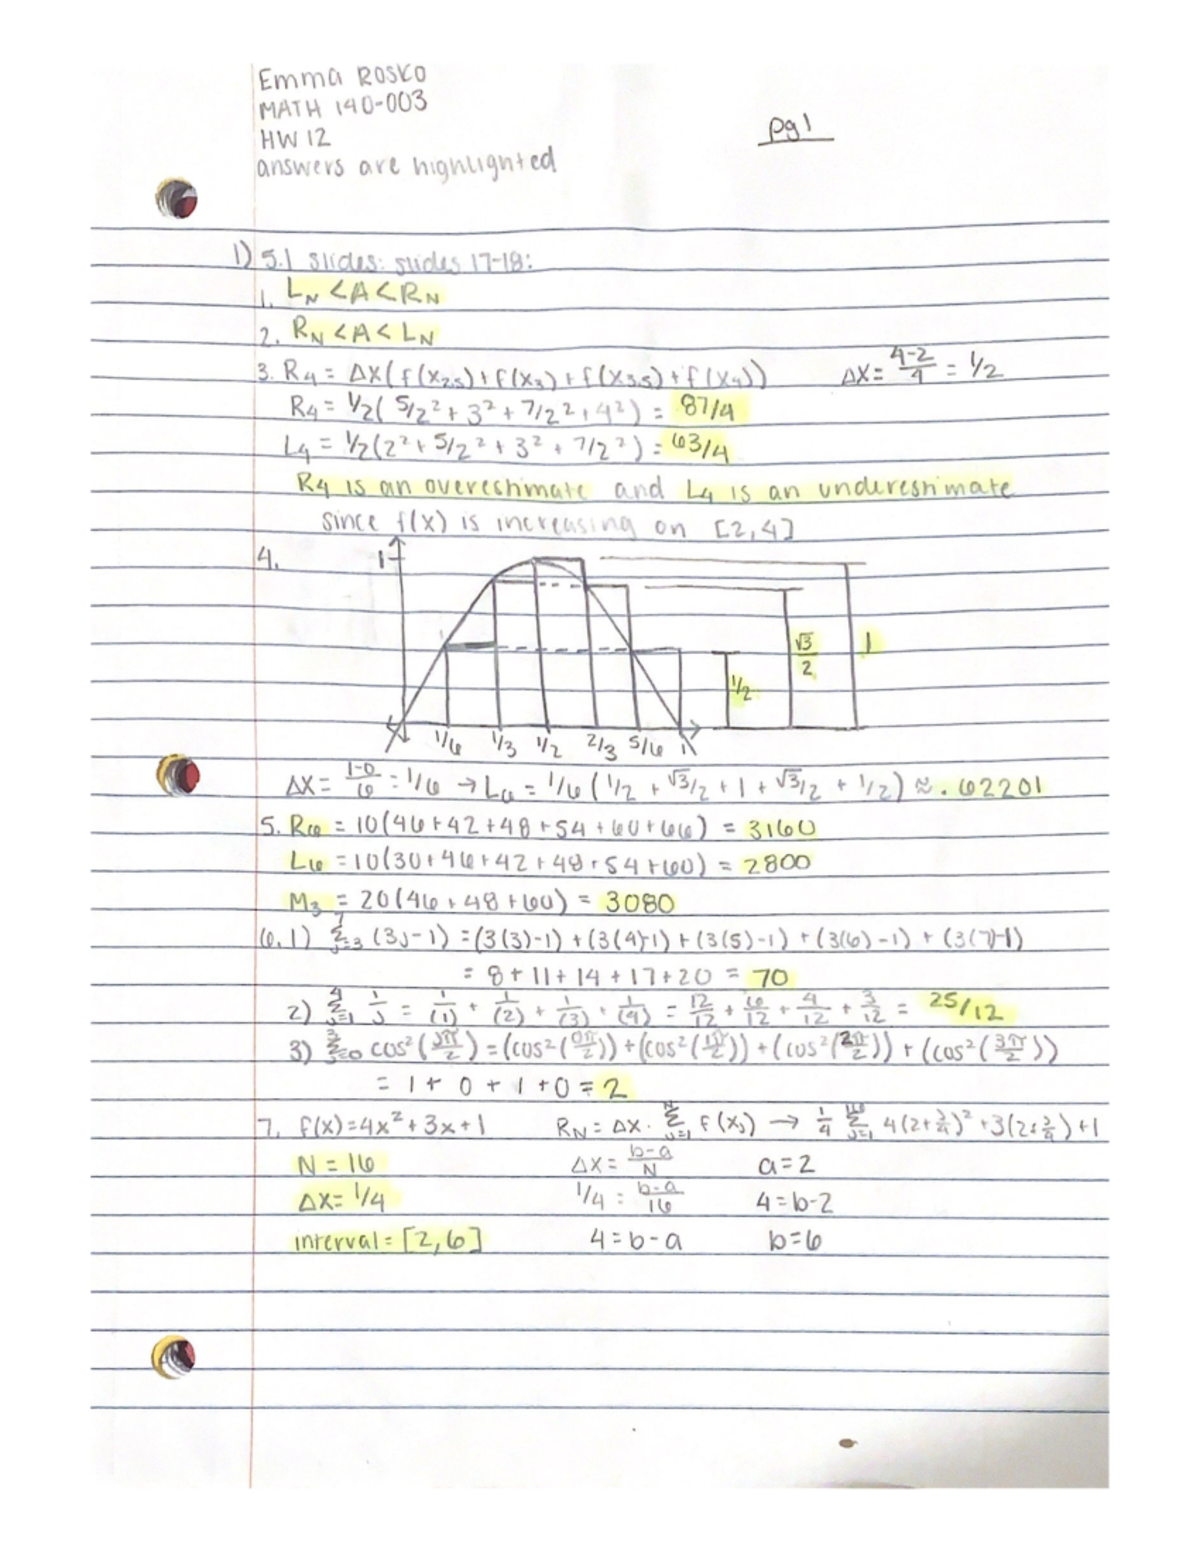 Emma Rosko
MATH 140-003
HW 12
pg 1
answers are highlighted
1) 5.1 slides: slides 17-18:
1. L_N < A < R_N
2. R_N < A < L_N
3. R4 = Δx(f(x2.5)+f(x3)+f(x3.5)+f(x4)) Δx = 4-2/4 = 1/2
R4 = 1/2(5/2² + 3² + 7/2² + 4²) = 87/4
L4 = 1/2(2² + 5/2² + 3² + 7/2²) = 63/4
R4 is an overestimate and L4 is an underestimate
since f(x) is increasing on [2,4]
4.
1
√3/2 1
1/2
1/6 1/3 1/2 2/3 5/6 1
Δx = 1-0/6 = 1/6 → L6 = 1/6(1/2 + √3/2 + 1 + √3/2 + 1/2) ≈ .62201
5. R6 = 10(46+42+48+54+60+66) = 3160
L6 = 10(30+46+42+48+54+60) = 2800
M3 = 20(46+48+60) = 3080
6. 1) 7Σj=3 (3j-1) = (3(3)-1)+(3(4)-1)+(3(5)-1)+(3(6)-1)+(3(7)-1)
= 8+11+14+17+20 = 70
2) 4Σj=1 1/j = 1/(1) + 1/(2) + 1/(3) + 1/(4) = 12/12 + 6/12 + 4/12 + 3/12 = 25/12
3) 3Σj=0 cos²(jπ/2) = (cos²(0π/2))+(cos²(1π/2))+(cos²(2π/2))+(cos²(3π/2))
= 1+0+1+0 = 2
7. f(x)=4x²+3x+1 R_N = Δx · NΣj=1 f(xj) → 1/4 16Σj=1 4(2+j/4)²+3(2+j/4)+1
N = 16 Δx = b-a/N a=2
Δx = 1/4 1/4 = b-a/16 4=b-2
interval = [2,6] 4=b-a b=6